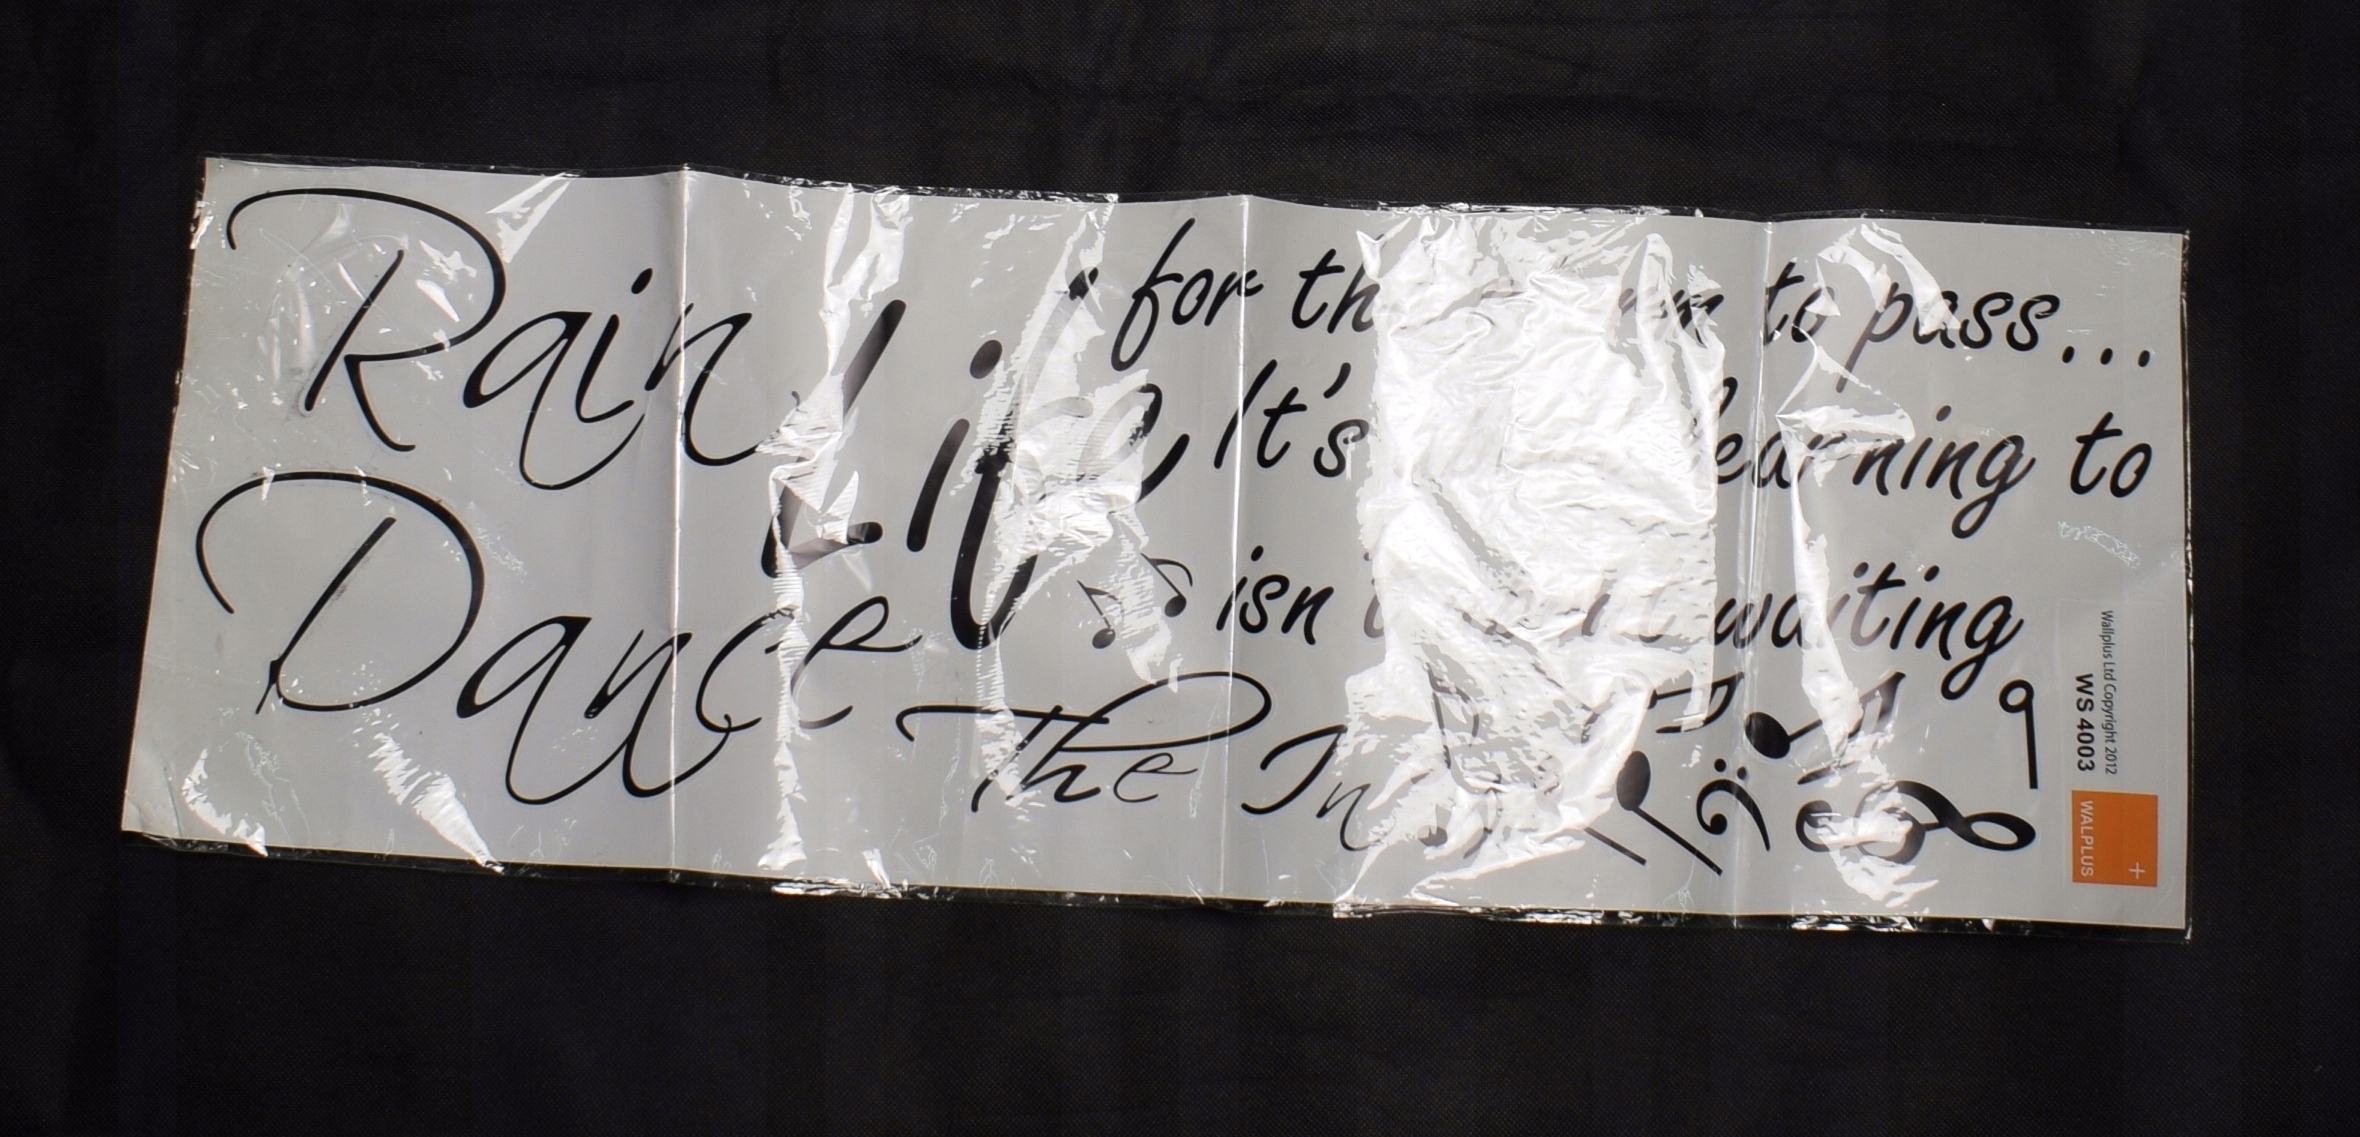 Rain
Life
for to pass...
It's learning to
Dance
isn waiting
The In
Wallplus Ltd Copyright 2012
WS 4003
WALPLUS